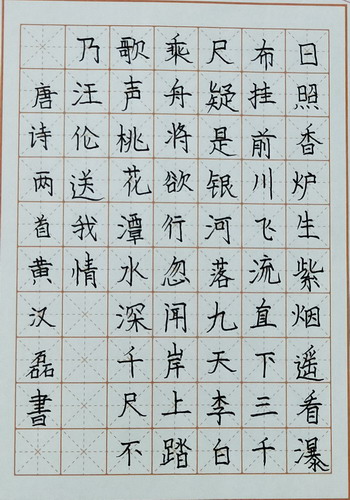 日照香炉生紫烟遥看瀑
布挂前川飞流直下三千
尺疑是银河落九天李白
乘舟将欲行忽闻岸上踏
歌声桃花潭水深千尺不
乃汪伦送我情
唐诗两首黄汉磊書